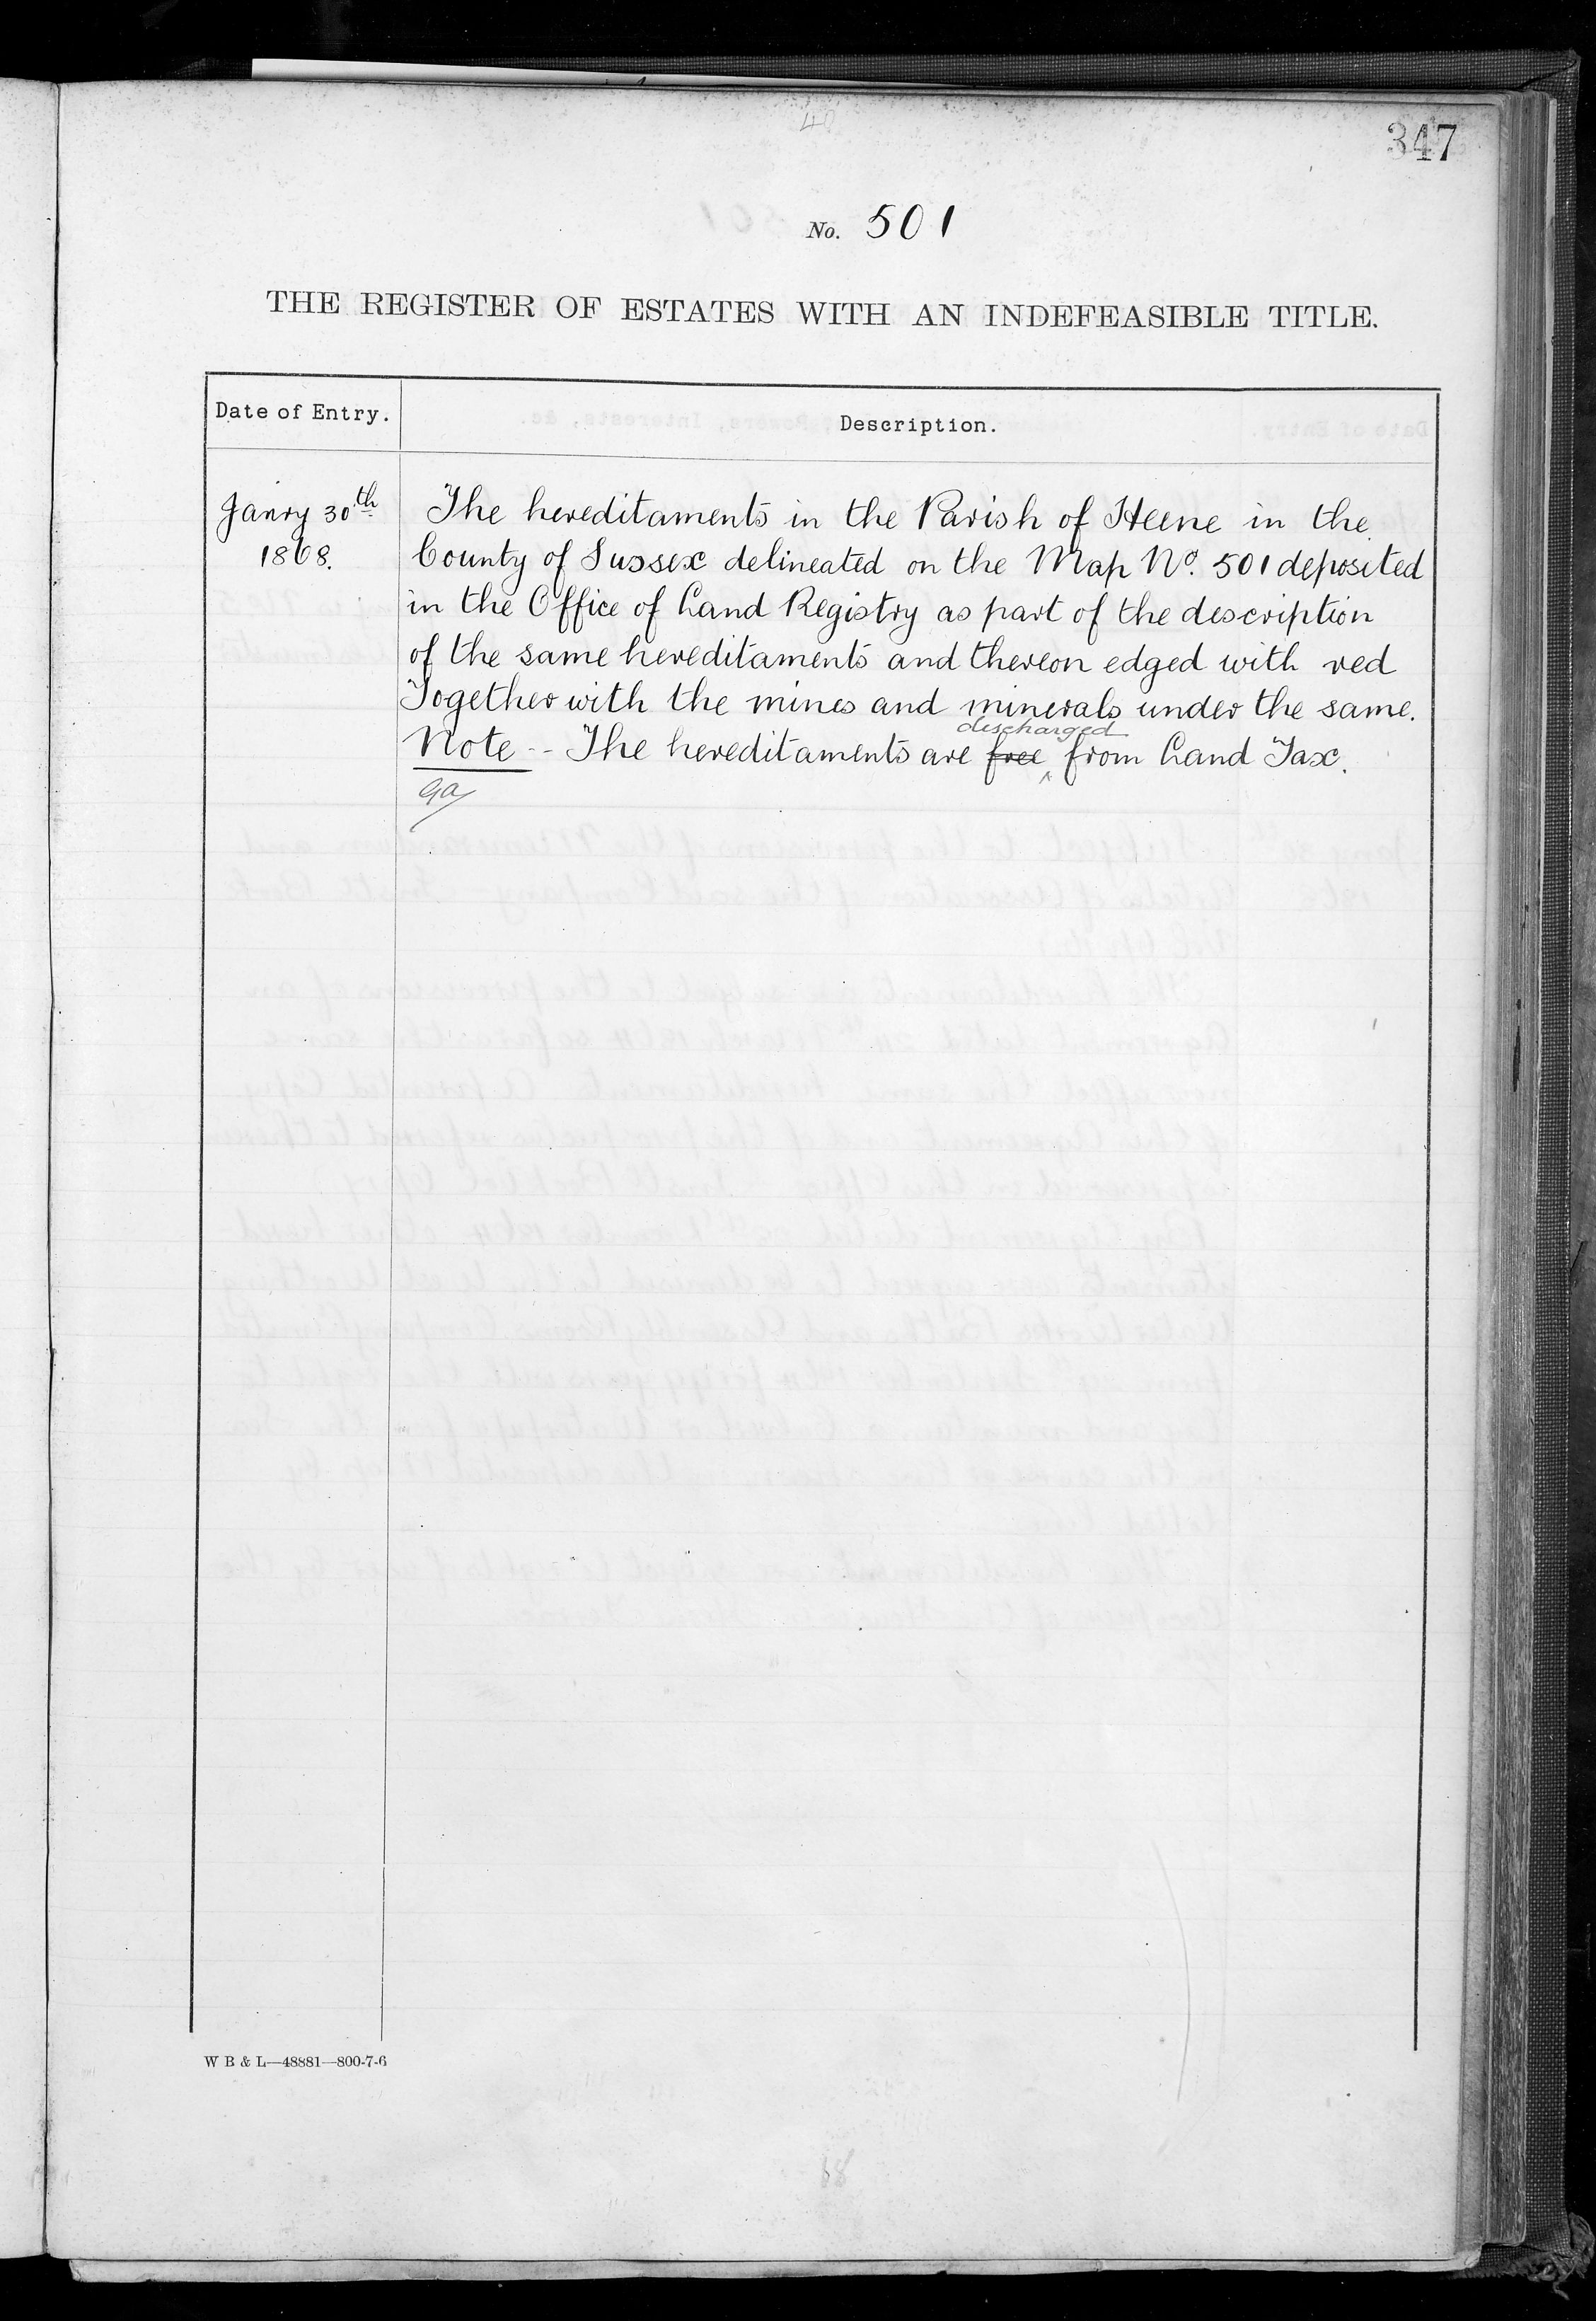 40
347
No. 501
THE REGISTER OF ESTATES WITH AN INDEFEASIBLE TITLE.
Date of Entry.
Description.
Janry 30th
1868.
The hereditaments in the Parish of Heene in the
County of Sussex delineated on the Map No. 501 deposited
in the Office of Land Registry as part of the description
of the same hereditaments and thereon edged with red
Together with the mines and minerals under the same.
discharged
Note -- The hereditaments are free from Land Tax.
W B & L—48881—800-7-6